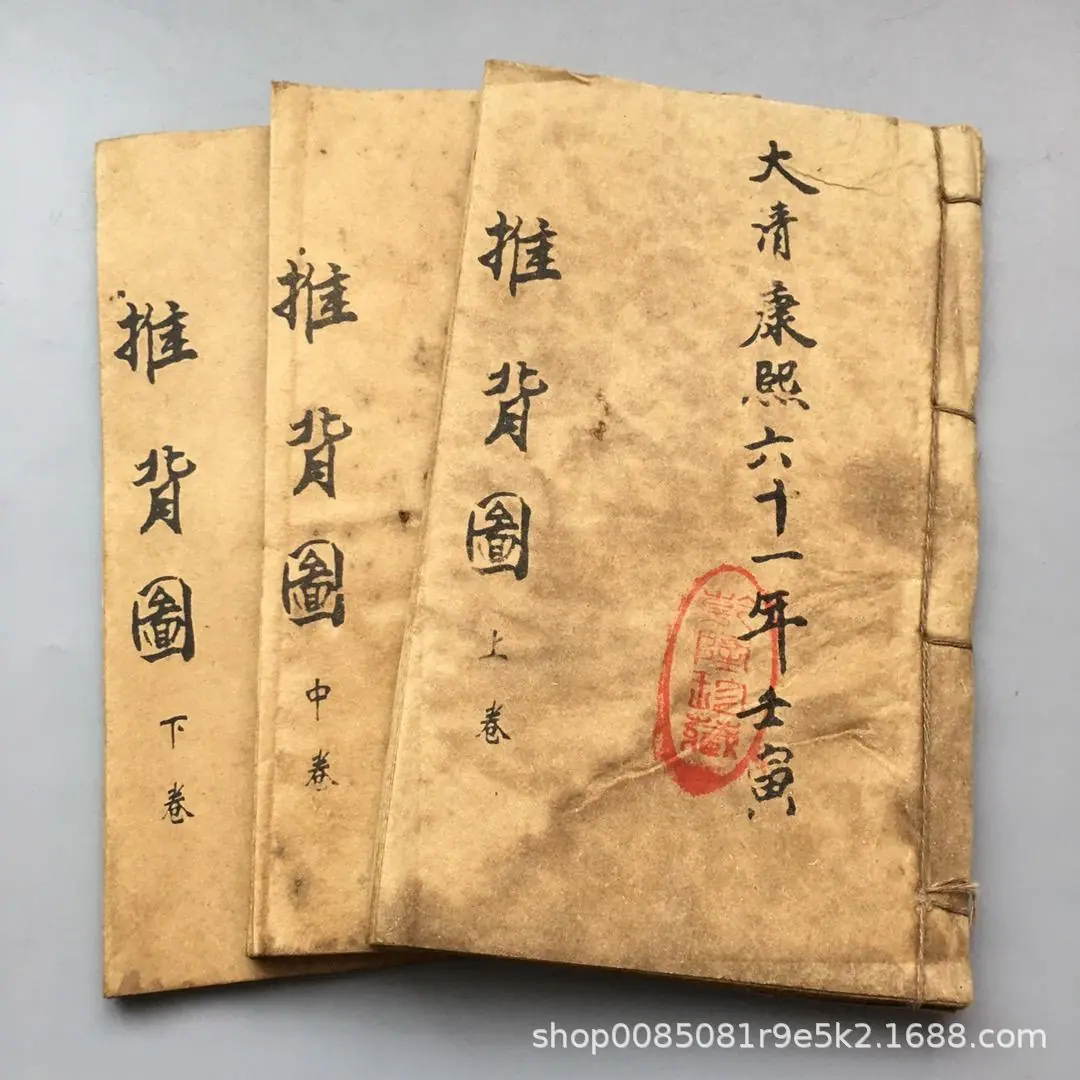 大清康熙六十一年壬寅
推背圖 上卷
推背圖 中卷
推背圖 下卷
shop0085081r9e5k2.1688.com